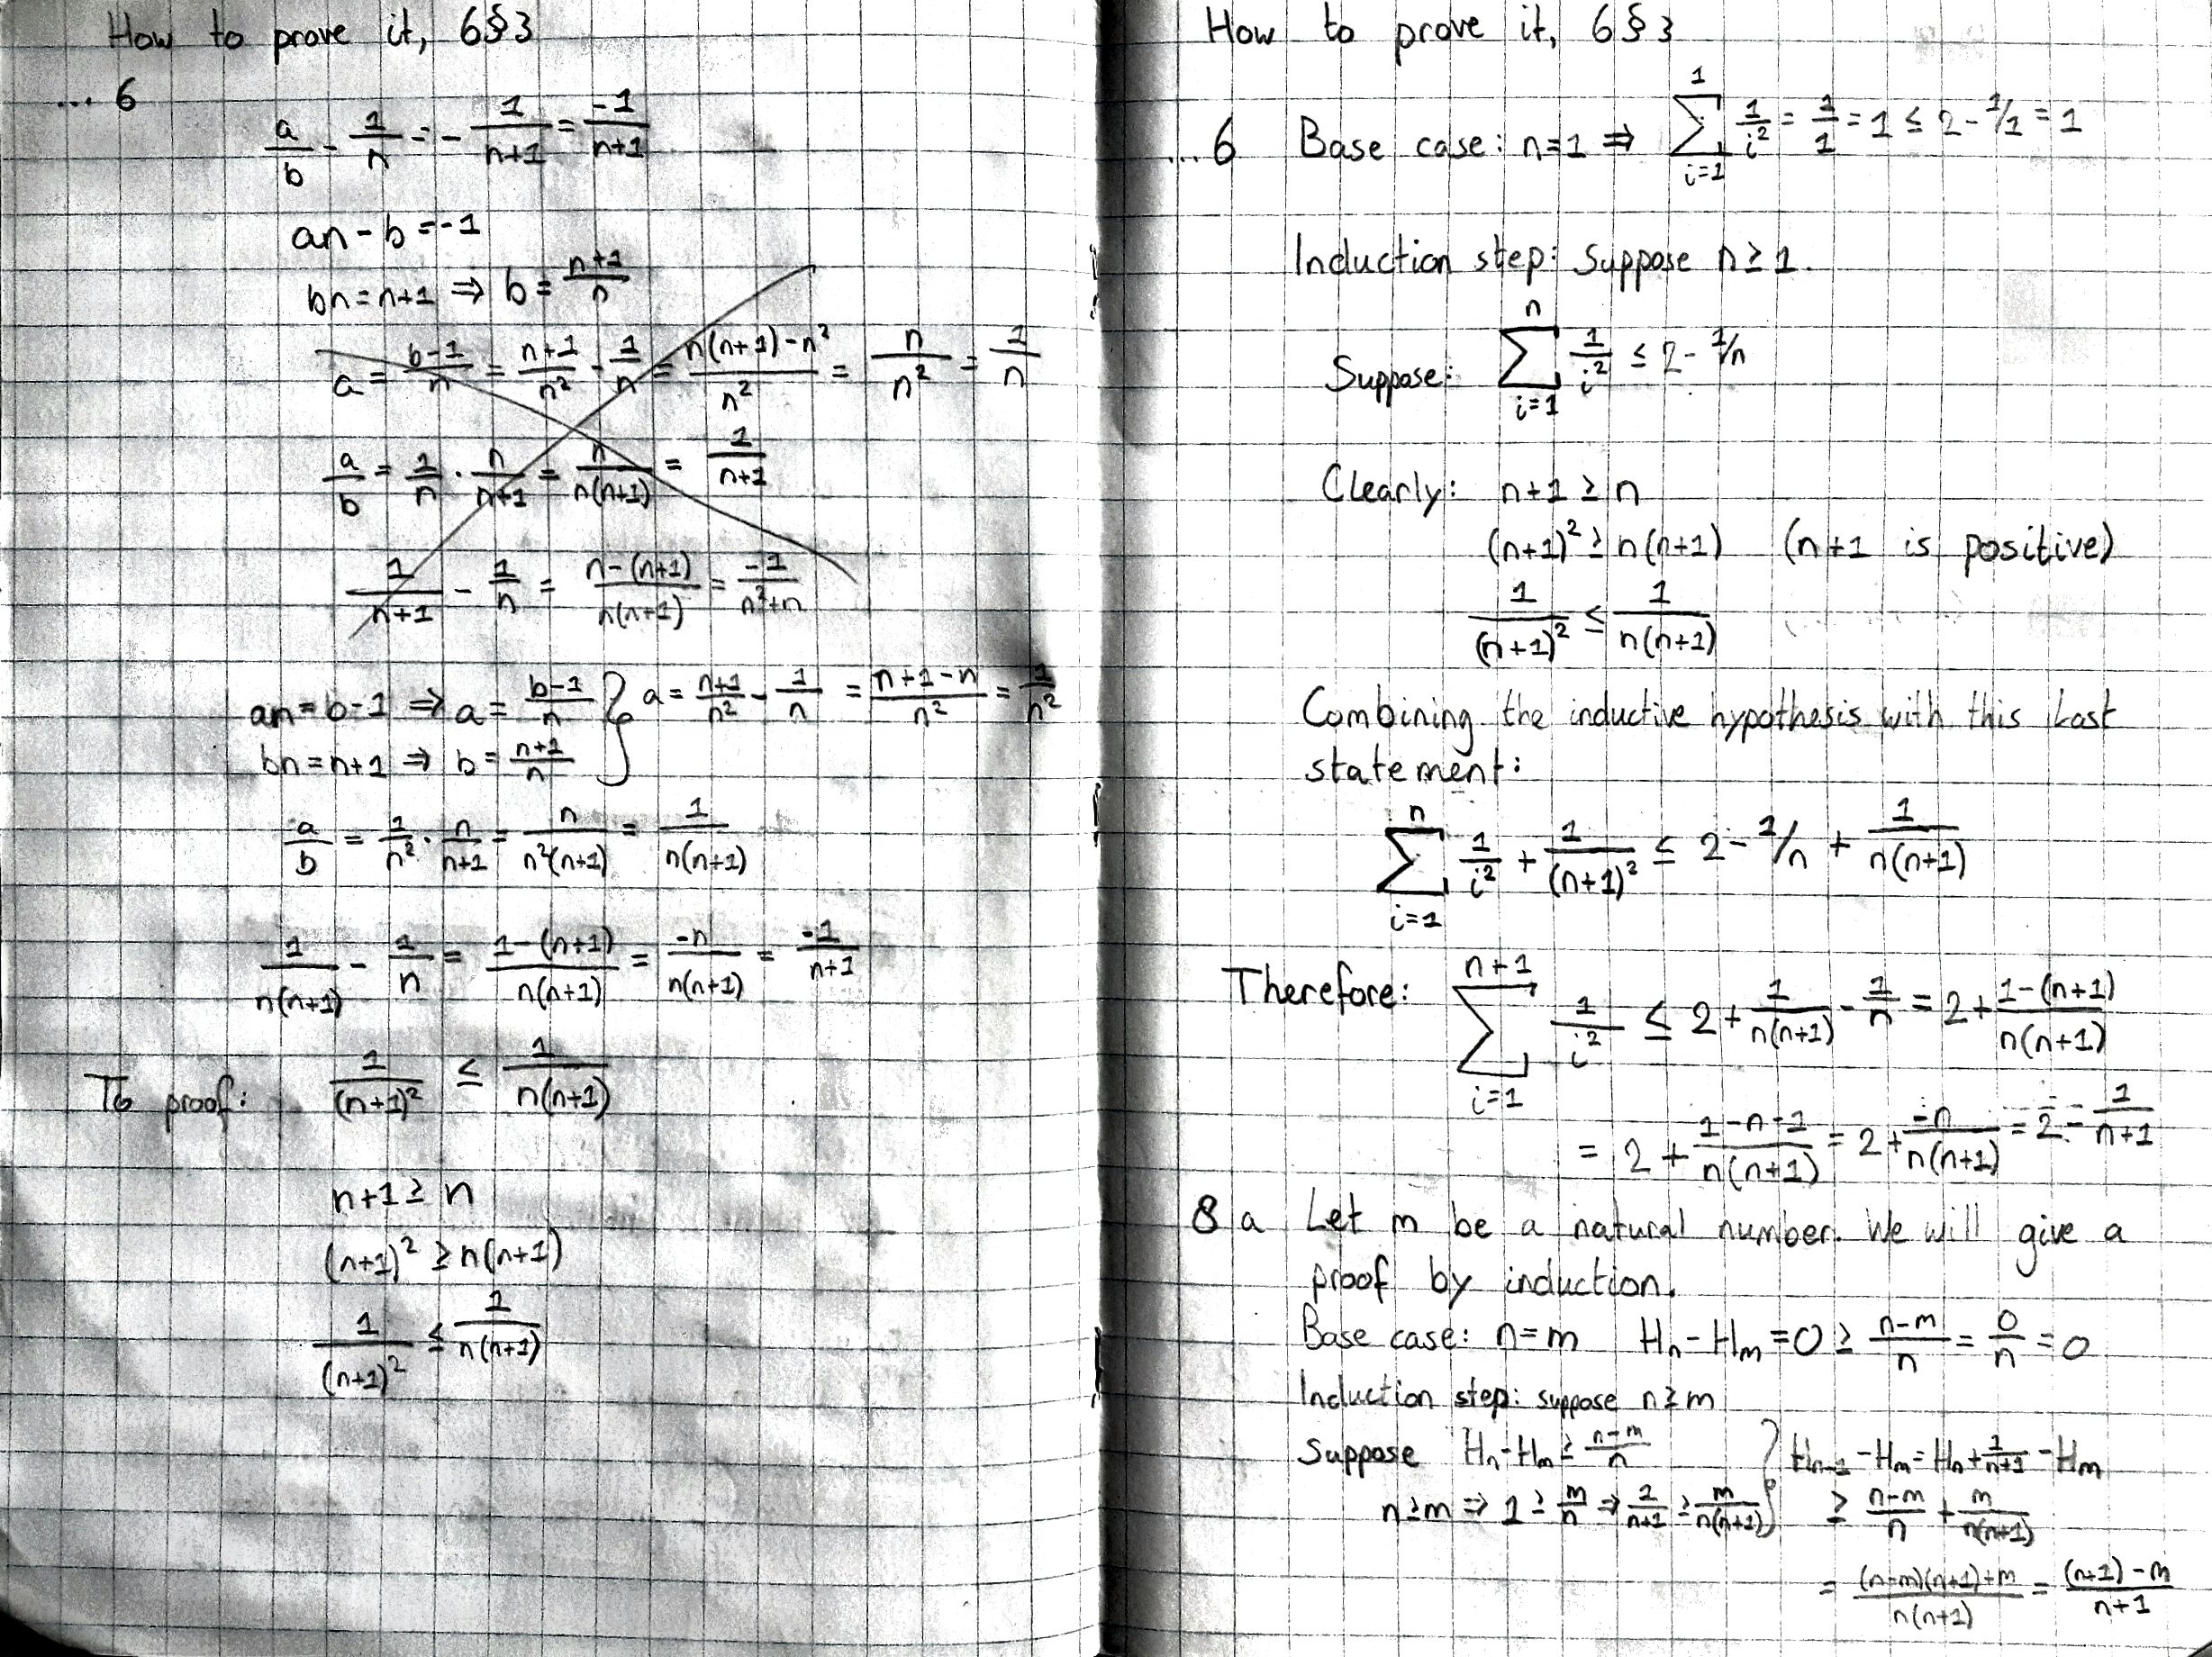 How to prove it, 6§3
... 6
a/b - 1/n = - 1/(n+1) = -1/(n+1)
an - b = -1
bn = n+1 ⇒ b = (n+1)/n
a = (b-1)/n = (n+1)/n² - 1/n = (n(n+1)-n²)/n² = n/n² = 1/n
a/b = 1/n · n/(n+1) = n/(n(n+1)) = 1/(n+1)
1/(n+1) - 1/n = (n-(n+1))/(n(n+1)) = -1/(n²+n)
an = b-1 ⇒ a = (b-1)/n } a = (n+1)/n² - 1/n = (n+1-n)/n² = 1/n²
bn = n+1 ⇒ b = (n+1)/n
a/b = 1/n² · n/(n+1) = n/(n²(n+1)) = 1/(n(n+1))
1/(n(n+1)) - 1/n = (1-(n+1))/(n(n+1)) = -n/(n(n+1)) = -1/(n+1)
To proof: 1/(n+1)² ≤ 1/(n(n+1))
n+1 ≥ n
(n+1)² ≥ n(n+1)
1/(n+1)² ≤ 1/(n(n+1))
How to prove it, 6§3
...6 Base case: n=1 ⇒ ∑_{i=1}^{1} 1/i² = 1/1 = 1 ≤ 2 - 1/1 = 1
Induction step: Suppose n ≥ 1.
Suppose: ∑_{i=1}^{n} 1/i² ≤ 2 - 1/n
Clearly: n+1 ≥ n
(n+1)² ≥ n(n+1) (n+1 is positive)
1/(n+1)² ≤ 1/(n(n+1))
Combining the inductive hypothesis with this last
statement:
∑_{i=1}^{n} 1/i² + 1/(n+1)² ≤ 2 - 1/n + 1/(n(n+1))
Therefore: ∑_{i=1}^{n+1} 1/i² ≤ 2 + 1/(n(n+1)) - 1/n = 2 + (1-(n+1))/(n(n+1))
= 2 + (1-n-1)/(n(n+1)) = 2 + -n/(n(n+1)) = 2 - 1/(n+1)
8 a Let m be a natural number. We will give a
proof by induction.
Base case: n=m Hₙ - Hₘ = 0 ≥ (n-m)/n = 0/n = 0
Induction step: suppose n ≥ m
Suppose Hₙ - Hₘ ≥ (n-m)/n } Hₙ₊₁ - Hₘ = Hₙ + 1/(n+1) - Hₘ
n ≥ m ⇒ 1 ≥ m/n ⇒ 1/(n+1) ≥ m/(n(n+1)) ≥ (n-m)/n + m/(n(n+1))
= ((n-m)(n+1)+m)/(n(n+1)) = ((n+1)-m)/(n+1)